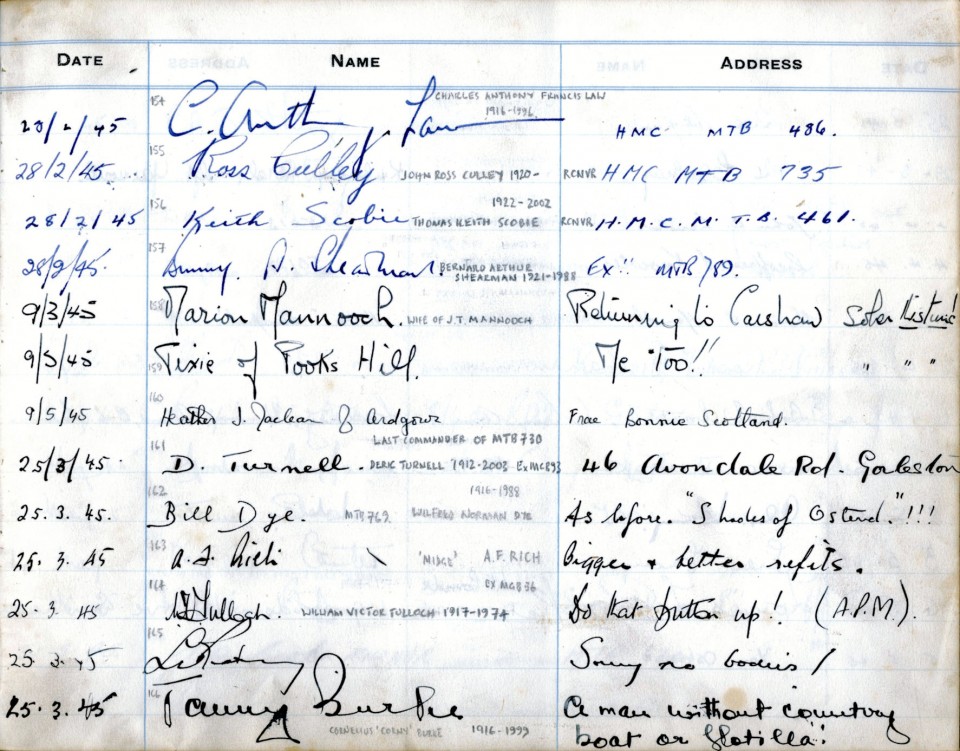 DATE NAME ADDRESS
154 CHARLES ANTHONY FRANCIS LAW
1916-1996
28/2/45 C. Anthony Law HMC MTB 486.
155
28/2/45. Ross Culley JOHN ROSS CULLEY 1920- RCNVR HMC MTB 735
156 1922-2002
28/2/45 Keith Scobie THOMAS KEITH SCOBIE RCNVR H.M.C.M.T.B. 461.
157
28/2/45. Bunny A. Shearman. BERNARD ARTHUR SHEARMAN 1921-1988 Ex!! MTB 789.
9/3/45 158 Marion Mannooch. WIFE OF J.T. MANNOOCH Returning to
9/3/45 159 Pixie of Pooks Hill. Me Too!! " " "
160
9/5/45 Heather J. Maclean of Ardgour Frae Bonnie Scotland.
161 LAST COMMANDER OF MTB 730
25/3/45. D. Turnell. DERK TURNELL 1912-2003 Ex MGB 93 46 Avondale Rd. Gorleston
162 1916-1988
25.3.45. Bill Dye. MTB 769. WILFRED NORMAN DYE As before. "Shades of Ostend." !!!
163
25.3.45 A.F. Rich 'MIDGE' A.F. RICH Bigger & better refits.
164 EX MGB 36
25.3.45 Tulloch. WILLIAM VICTOR TULLOCH 1917-1974 Do that button up! (A.P.M.).
165
25.3.45 Sorry no bodies!
25.3.45 166 Burke A man without country
CORNELIUS 'CORNY' BURKE 1916-1999 boat or flotilla!